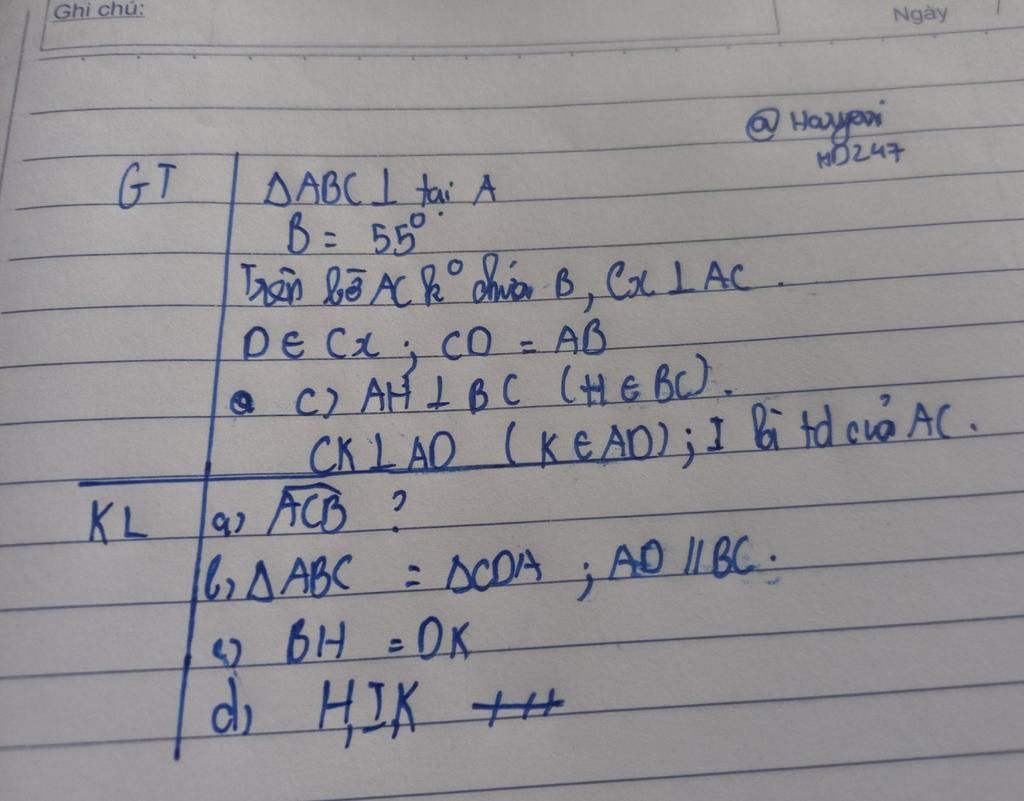 Ghi chú:
Ngày
@ Hayyeoi
HD247
GT
ΔABC ⊥ tại A
B = 55°
Trên bờ AC k° chứa B, Cx ⊥ AC.
D ∈ Cx ; CD = AB
c) AH ⊥ BC (H ∈ BC).
CK ⊥ AD (K ∈ AD) ; I là td của AC.
KL
a) ACB ?
b) ΔABC = ΔCDA ; AD // BC.
c) BH = DK
d) H, I, K